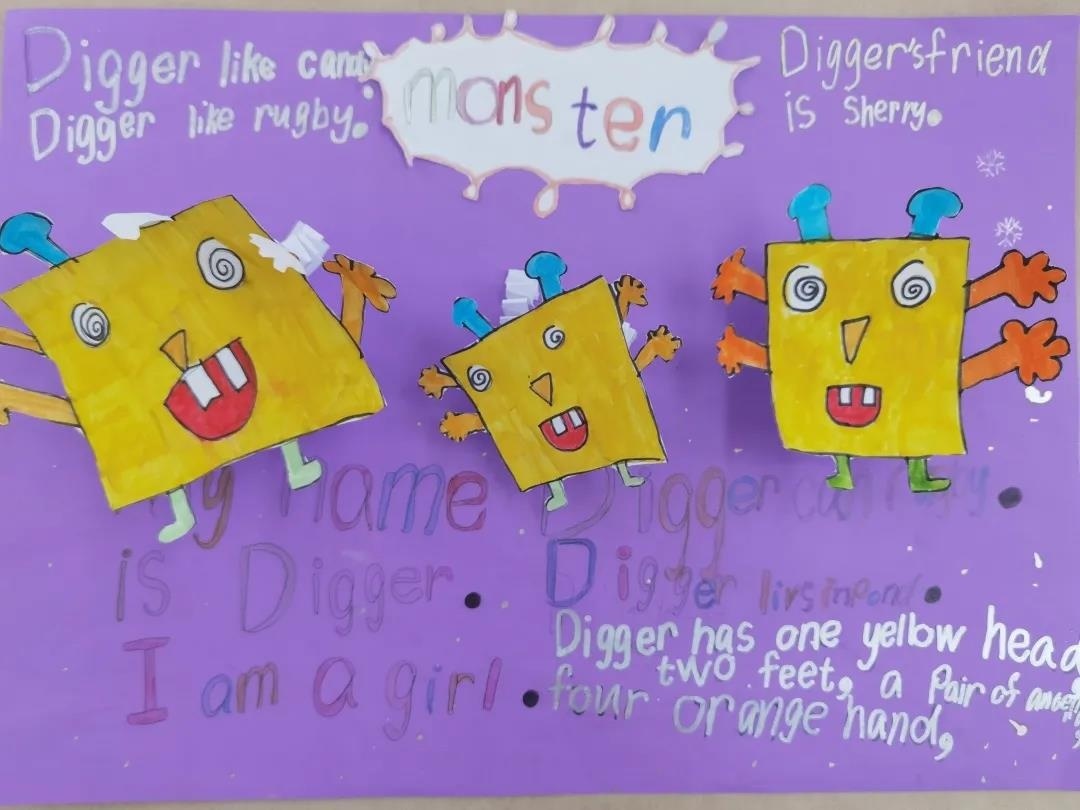 Digger like candy
Digger like rugby.
monster
Digger's friend
is Sherry.
My name
is Digger.
I am a girl.
Digger can rugby.
Digger livs in Pond.
Digger has one yellow head,
two feet, a Pair of
four orange hand,